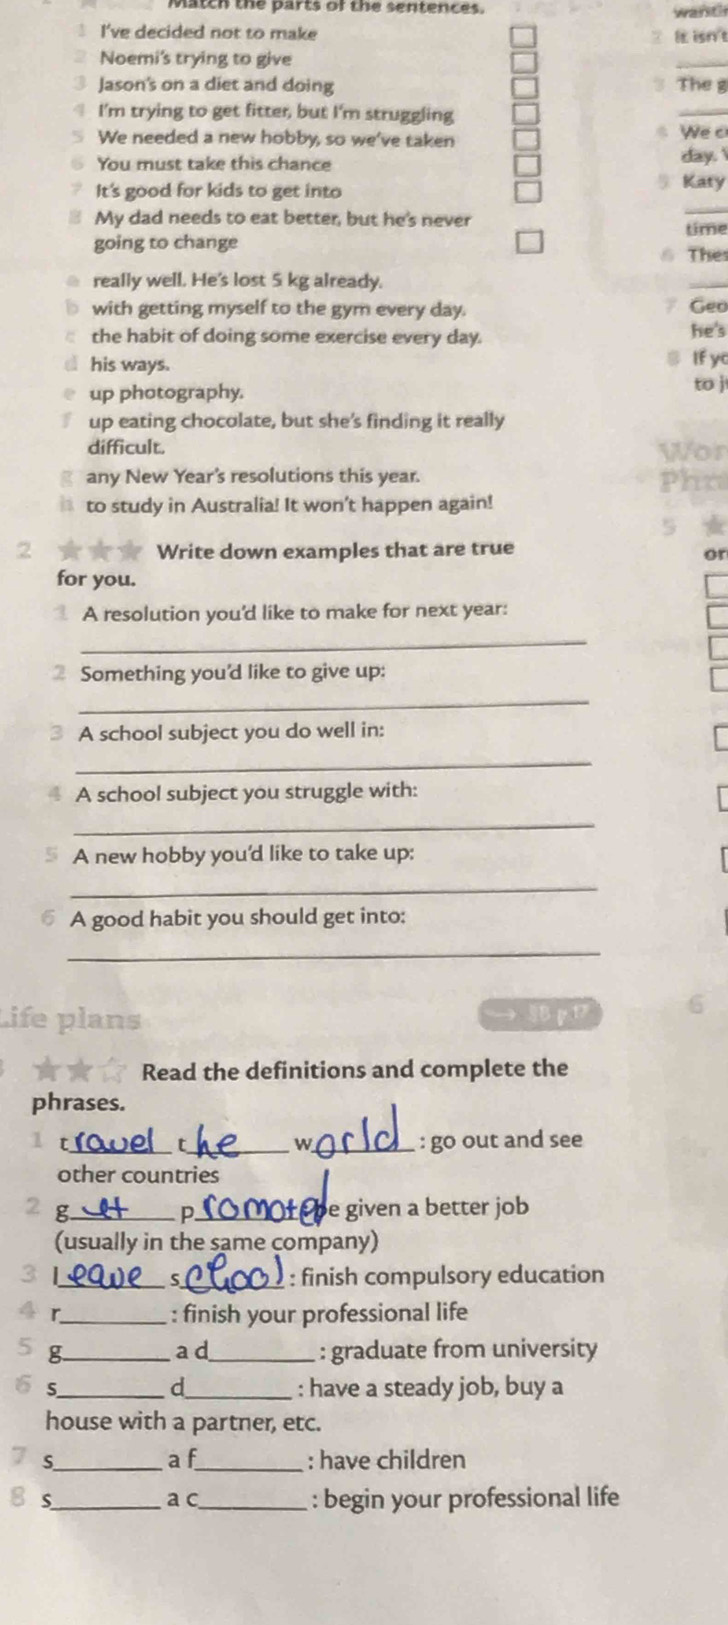 Match the parts of the sentences.
1 I've decided not to make
2 Noemi's trying to give
3 Jason's on a diet and doing
4 I'm trying to get fitter, but I'm struggling
5 We needed a new hobby, so we've taken
6 You must take this chance
7 It's good for kids to get into
8 My dad needs to eat better, but he's never
going to change
a really well. He's lost 5 kg already.
b with getting myself to the gym every day.
c the habit of doing some exercise every day.
d his ways.
e up photography.
f up eating chocolate, but she's finding it really
difficult.
g any New Year's resolutions this year.
h to study in Australia! It won't happen again!
2 Write down examples that are true
for you.
1 A resolution you'd like to make for next year:
2 Something you'd like to give up:
3 A school subject you do well in:
4 A school subject you struggle with:
5 A new hobby you'd like to take up:
6 A good habit you should get into:
Life plans
SB p17
Read the definitions and complete the
phrases.
1 travel the world : go out and see
other countries
2 get promoted: be given a better job
(usually in the same company)
3 leave school : finish compulsory education
4 r________ : finish your professional life
5 g________ a d________ : graduate from university
6 s________ d________ : have a steady job, buy a
house with a partner, etc.
7 s________ a f________ : have children
8 s________ a c________ : begin your professional life
2 It isn't
3 The
4 We
day.
5 Katy
time
6
7 Geo
he's
8 If
to
5
or
6